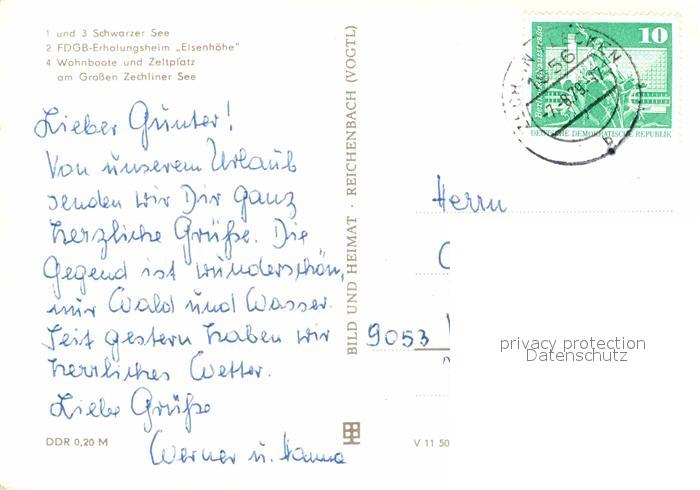 1 und 3 Schwarzer See
2 FDGB-Erholungsheim „Elsenhöhe"
4 Wohnboote und Zeltplatz
am Großen Zechliner See
Lieber Günter!
Von unserem Urlaub
senden wir Dir ganz
herzliche Grüße. Die
Gegend ist wunderschön,
nur Wald und Wasser.
Seit gestern haben wir
herrliches Wetter.
Liebe Grüße
Werner u. Hanna
DDR 0,20 M
BILD UND HEIMAT · REICHENBACH (VOGTL)
V 11 50
10
DEUTSCHE DEMOKRATISCHE REPUBLIK
-7.-8.79-17
Herrn
9053
privacy protection
Datenschutz